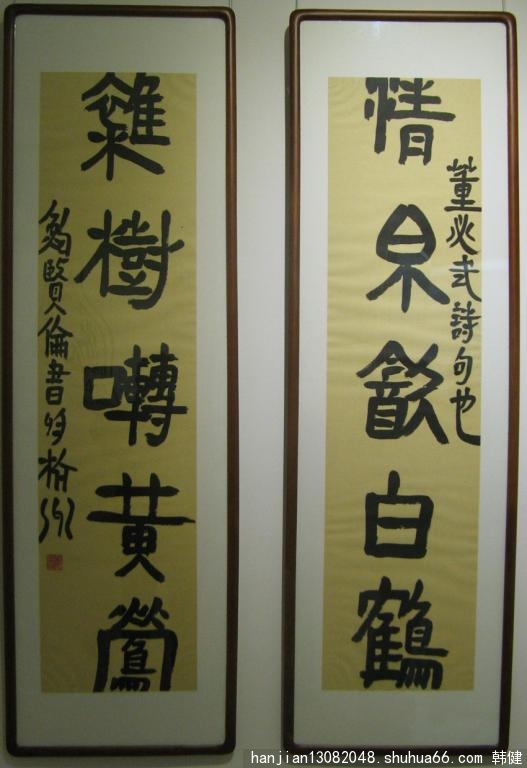 清泉飲白鶴
董必武詩句也
雜樹囀黃鶯
賢倫書於
hanjian13082048.shuhua66.com 韩健